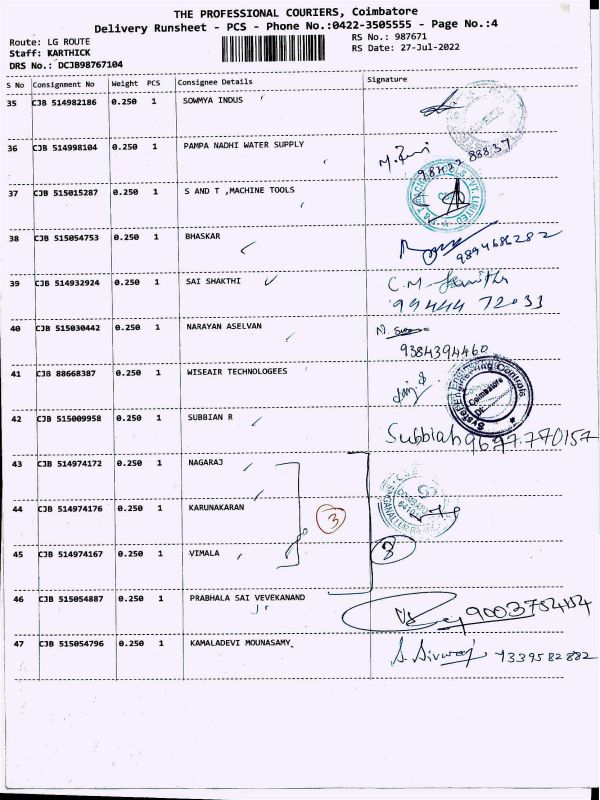 THE PROFESSIONAL COURIERS, Coimbatore
Delivery Runsheet - PCS - Phone No.:0422-3505555 - Page No.:4
Route: LG ROUTE RS No.: 987671
Staff: KARTHICK RS Date: 27-Jul-2022
DRS No.: DCJB98767104
S No Consignment No Weight PCS Consignee Details Signature
35 CJB 514982186 0.250 1 SOWMYA INDUS
36 CJB 514998104 0.250 1 PAMPA NADHI WATER SUPPLY
37 CJB 515015287 0.250 1 S AND T ,MACHINE TOOLS
38 CJB 515054753 0.250 1 BHASKAR 9894686282
39 CJB 514932924 0.250 1 SAI SHAKTHI C.M
99444 72033
40 CJB 515030442 0.250 1 NARAYAN ASELVAN
9384394460
41 CJB 88668387 0.250 1 WISEAIR TECHNOLOGEES
System Engineering Controls Coimbatore
42 CJB 515009958 0.250 1 SUBBIAN R
Subbiah 9697770157
43 CJB 514974172 0.250 1 NAGARAJ
44 CJB 514974176 0.250 1 KARUNAKARAN 3
45 CJB 514974167 0.250 1 VIMALA 3
46 CJB 515054887 0.250 1 PRABHALA SAI VEVEKANAND
47 CJB 515054796 0.250 1 KAMALADEVI MOUNASAMY 7339582882